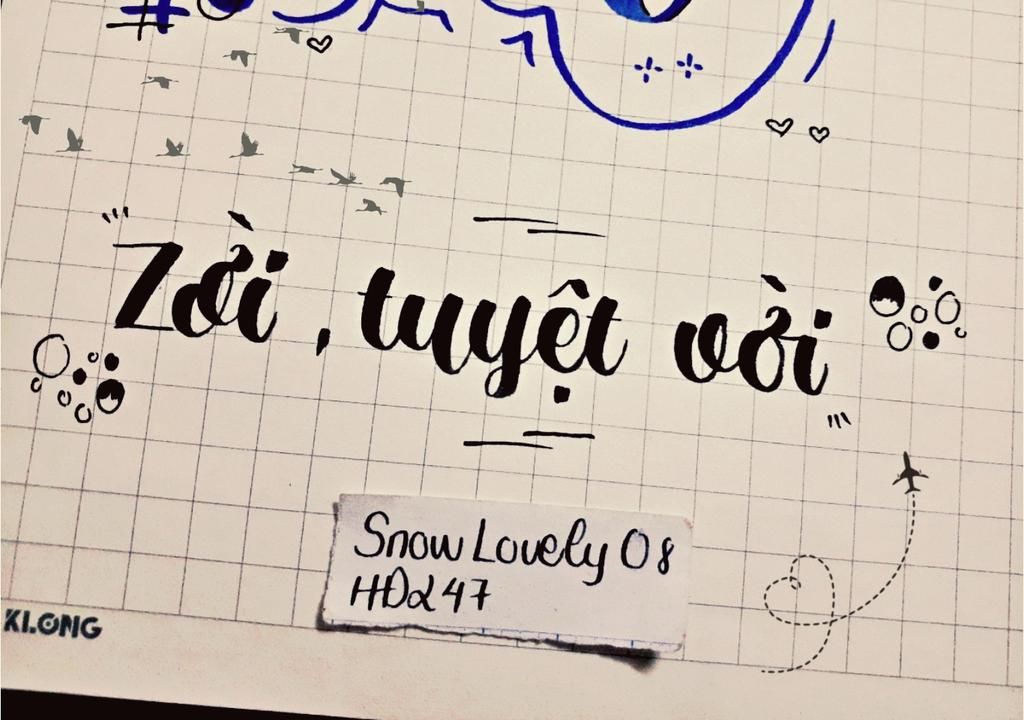 #
"Zời, tuyệt vời"
Snow Lovely 08
HĐ247
KLONG